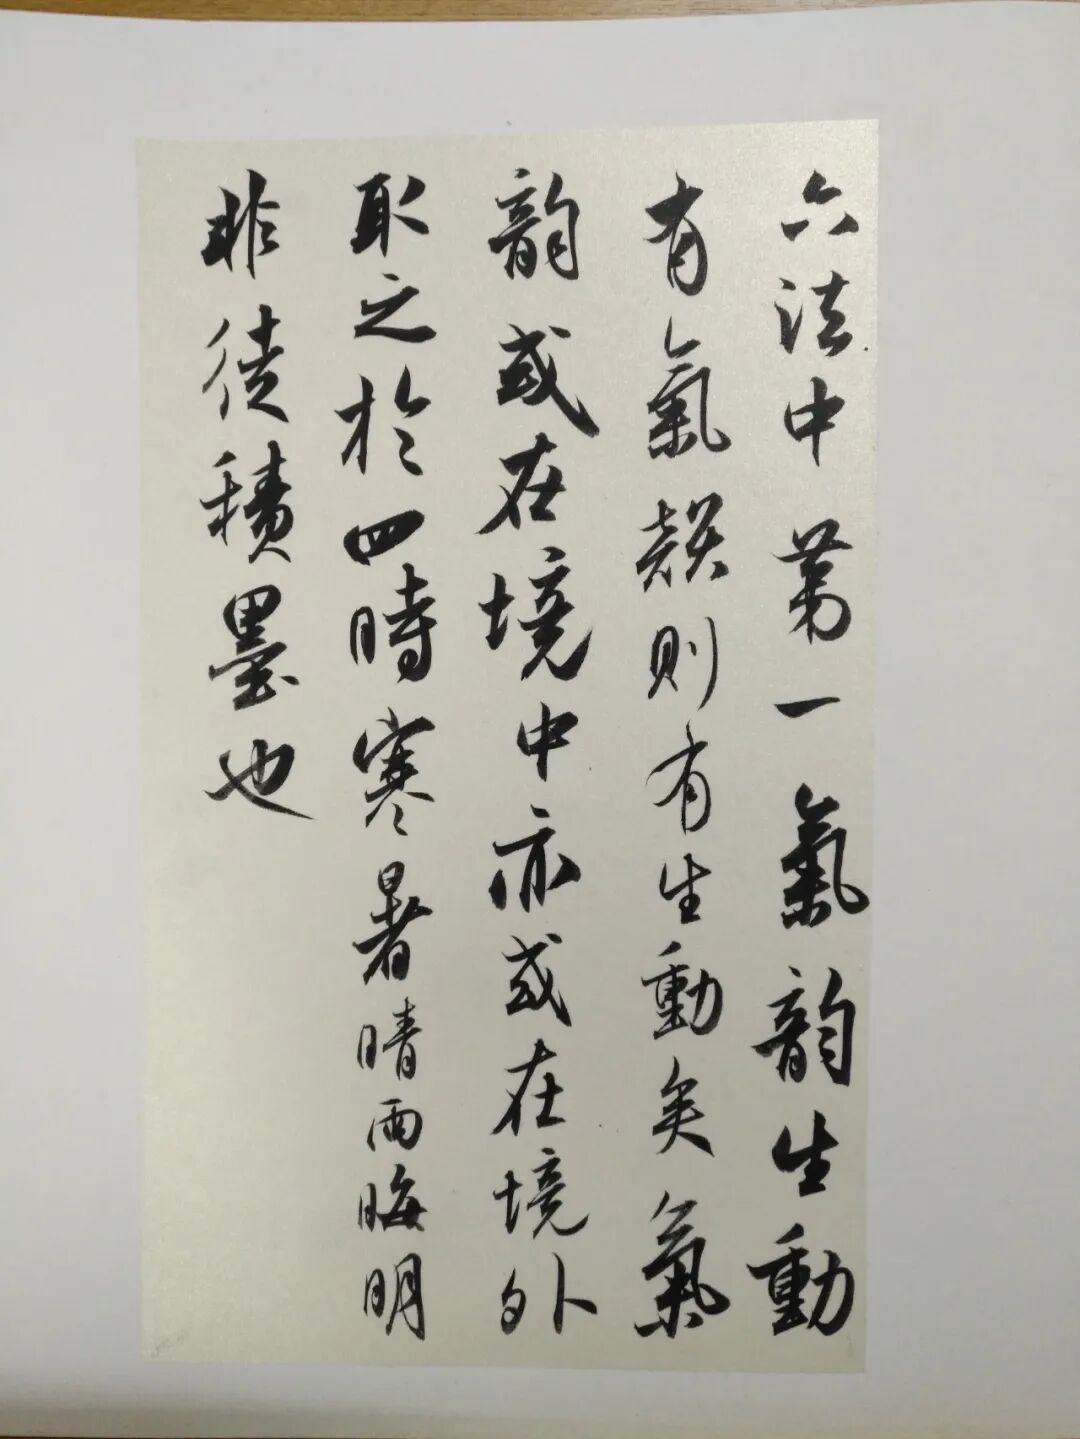 六法中第一氣韵生動
有氣韻則有生動矣氣
韵或在境中亦或在境外
取之於四時寒暑晴雨晦明
非徒積墨也